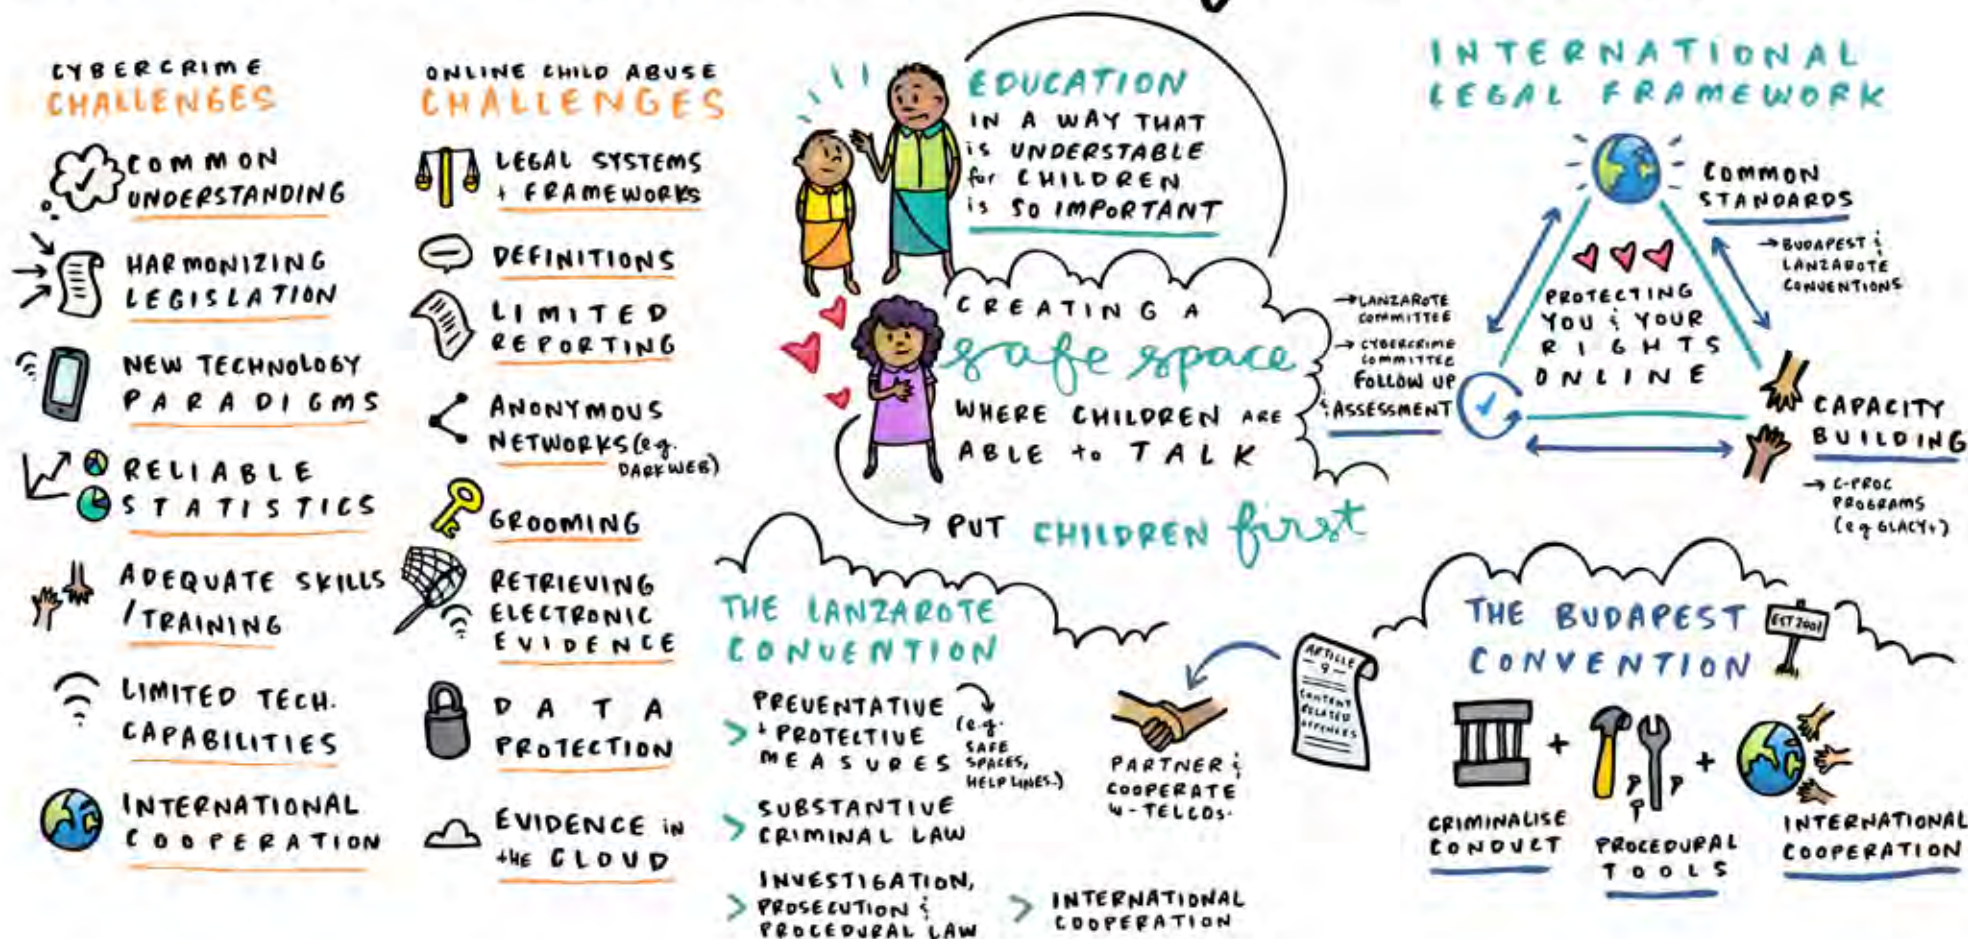 CYBERCRIME
CHALLENGES
COMMON
UNDERSTANDING
HARMONIZING
LEGISLATION
NEW TECHNOLOGY
PARADIGMS
RELIABLE
STATISTICS
ADEQUATE SKILLS
/TRAINING
LIMITED TECH.
CAPABILITIES
INTERNATIONAL
COOPERATION
ONLINE CHILD ABUSE
CHALLENGES
LEGAL SYSTEMS
+ FRAMEWORKS
DEFINITIONS
LIMITED
REPORTING
ANONYMOUS
NETWORKS (e.g.
DARKWEB)
GROOMING
RETRIEVING
ELECTRONIC
EVIDENCE
DATA
PROTECTION
EVIDENCE in
the CLOUD
EDUCATION
IN A WAY THAT
is UNDERSTABLE
for CHILDREN
is SO IMPORTANT
CREATING A
safe space
WHERE CHILDREN ARE
ABLE to TALK
PUT CHILDREN first
THE LANZAROTE
CONVENTION
> PREVENTATIVE
+ PROTECTIVE
MEASURES
(e.g.
SAFE
SPACES,
HELPLINES.)
> SUBSTANTIVE
CRIMINAL LAW
> INVESTIGATION,
PROSECUTION &
PROCEDURAL LAW
> INTERNATIONAL
COOPERATION
PARTNER &
COOPERATE
w- TELCOS.
ARTICLE
- 9 -
CONTENT
RELATED
OFFENCES
INTERNATIONAL
LEGAL FRAMEWORK
COMMON
STANDARDS
→ BUDAPEST &
LANZAROTE
CONVENTIONS
PROTECTING
YOU & YOUR
RIGHTS
ONLINE
→ LANZAROTE
COMMITTEE
→ CYBERCRIME
COMMITTEE
FOLLOW UP
& ASSESSMENT
CAPACITY
BUILDING
→ C-PROC
PROGRAMS
(e.g GLACY+)
THE BUDAPEST
CONVENTION
EST 2001
CRIMINALISE
CONDUCT
+
PROCEDURAL
TOOLS
+
INTERNATIONAL
COOPERATION